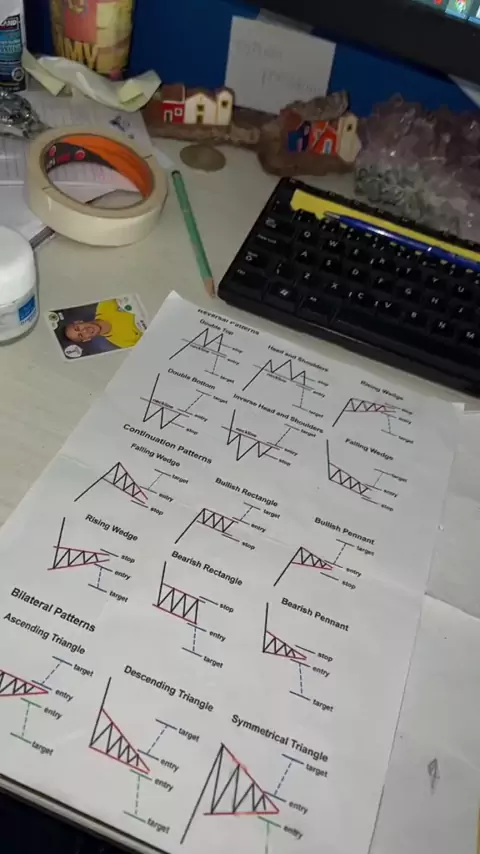 AMY
Reversal Patterns
Double Top
stop
neckline
entry
target
Head and Shoulders
stop
neckline
entry
target
Rising Wedge
stop
entry
target
Double Bottom
target
neckline
entry
stop
Inverse Head and Shoulders
target
neckline
entry
stop
Falling Wedge
target
entry
stop
Continuation Patterns
Falling Wedge
target
entry
stop
Bullish Rectangle
target
entry
stop
Bullish Pennant
target
entry
stop
Rising Wedge
stop
entry
target
Bearish Rectangle
stop
entry
target
Bearish Pennant
stop
entry
target
Bilateral Patterns
Ascending Triangle
target
entry
entry
target
Descending Triangle
target
entry
entry
target
Symmetrical Triangle
target
entry
entry